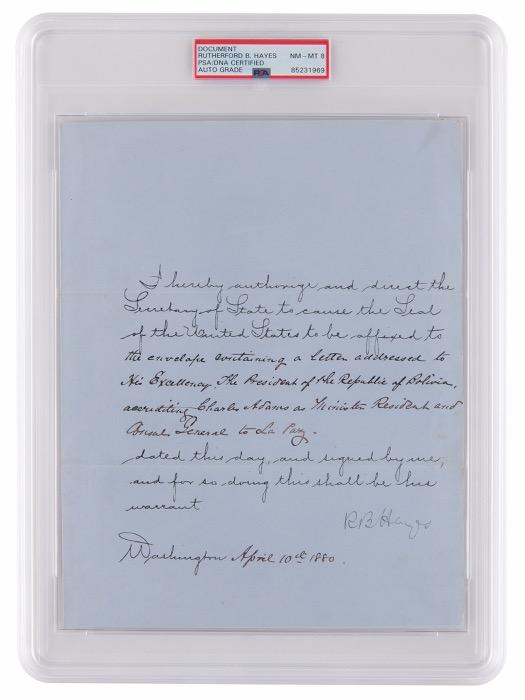 DOCUMENT
RUTHERFORD B. HAYES NM - MT 8
PSA/DNA CERTIFIED
AUTO GRADE PSA 85231969
I hereby authorize and direct the
Secretary of State to cause the Seal
of the United States to be affixed to
the envelope containing a letter addressed to
His Excellency The President of the Republic of Bolivia,
accrediting Charles Adams as Minister Resident and
Consul General to La Paz.
dated this day, and signed by me,
and for so doing this shall be his
warrant
R.B. Hayes
Washington April 10th 1880.